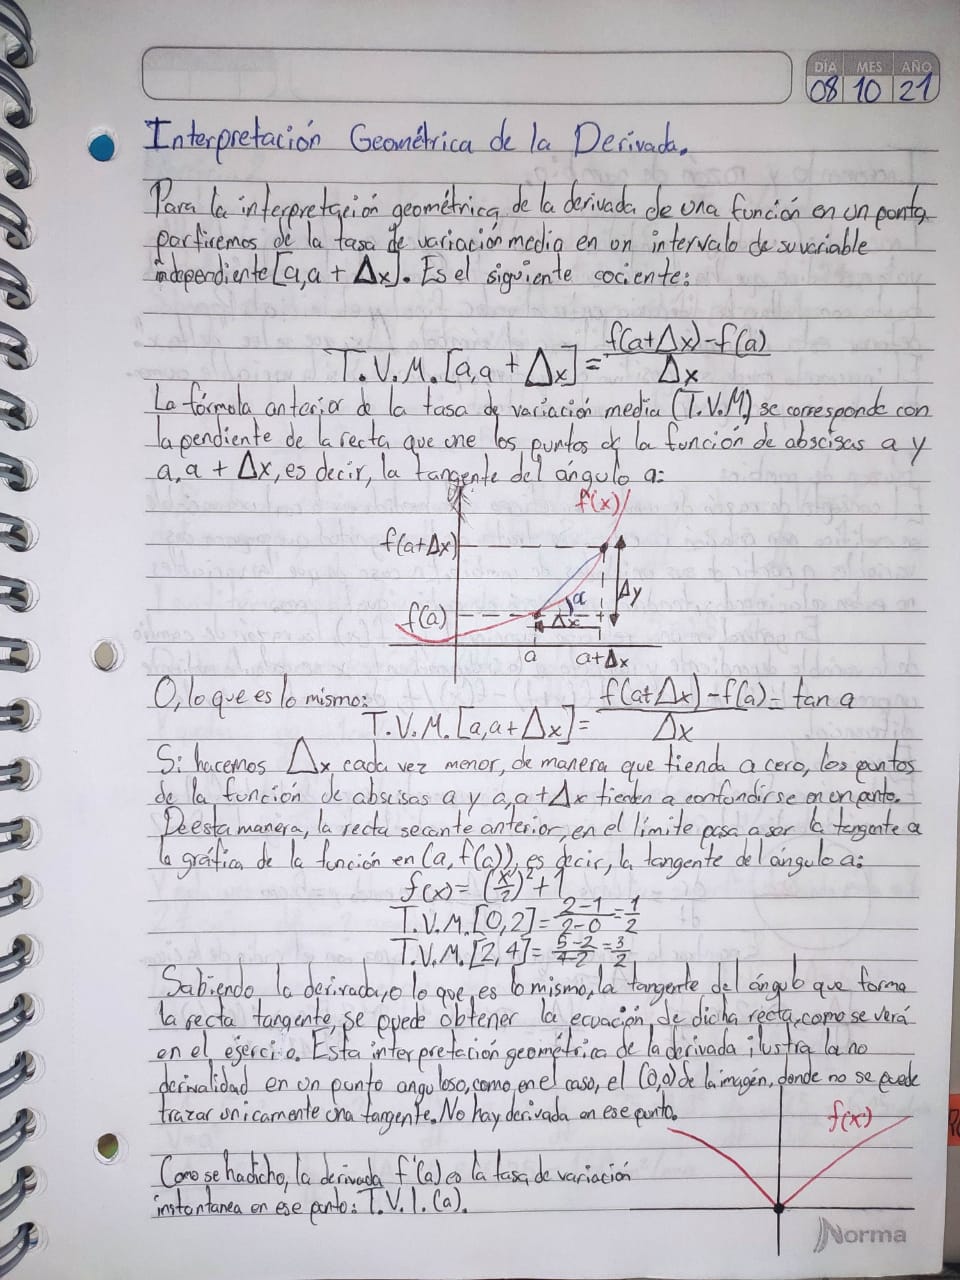 DÍA MES AÑO
08 10 21
Interpretación Geométrica de la Derivada.
Para la interpretación geométrica de la derivada de una función en un punto,
partiremos de la tasa de variación media en un intervalo de su variable
independiente [a, a + Δx]. Es el siguiente cociente:
T.V.M.[a, a + Δx] = f(a+Δx)-f(a) / Δx
La fórmula anterior de la tasa de variación media (T.V.M.) se corresponde con
la pendiente de la recta que une los puntos de la función de abscisas a y
a, a + Δx, es decir, la tangente del ángulo a:
f(x)
f(a+Δx)
f(a)
α
Δy
Δx
a
a+Δx
O, lo que es lo mismo:
T.V.M.[a, a + Δx] = f(a+Δx)-f(a) / Δx = tan a
Si hacemos Δx cada vez menor, de manera que tienda a cero, los puntos
de la función de abscisas a y a, a + Δx tienden a confundirse en un punto.
De esta manera, la recta secante anterior, en el límite pasa a ser la tangente a
la gráfica de la función en (a, f(a)), es decir, la tangente del ángulo a:
f(x) = (x/2)² + 1
T.V.M.[0,2] = 2-1 / 2-0 = 1/2
T.V.M.[2,4] = 5-2 / 4-2 = 3/2
Sabiendo la derivada, o lo que es lo mismo, la tangente del ángulo que forma
la recta tangente, se puede obtener la ecuación de dicha recta, como se verá
en el ejercicio. Esta interpretación geométrica de la derivada ilustra la no
derivalidad en un punto anguloso, como en el caso, el (0,0) de la imagén, donde no se puede
trazar únicamente una tangente. No hay derivada en ese punto.
f(x)
Como se ha dicho, la derivada f'(a) es la tasa de variación
instantanea en ese punto: T.V.I.(a).
Norma